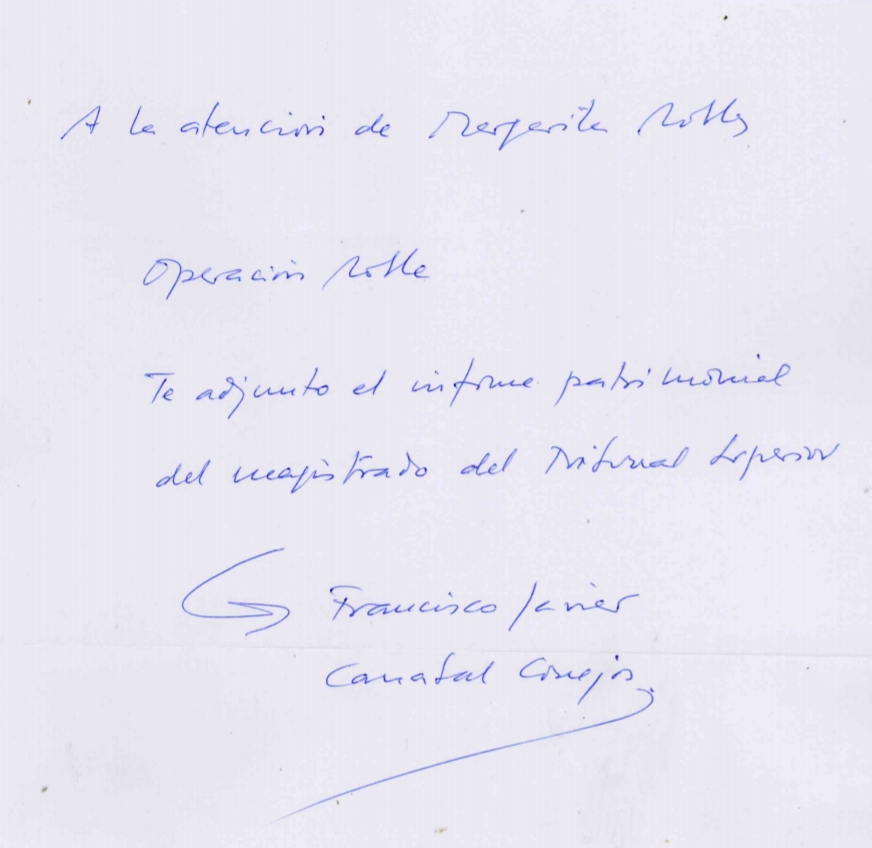 A la atención de Margarita Robles
Operación Roble
Te adjunto el informe patrimonial
del magistrado del Tribunal Superior
Francisco Javier
Canabal Conejos